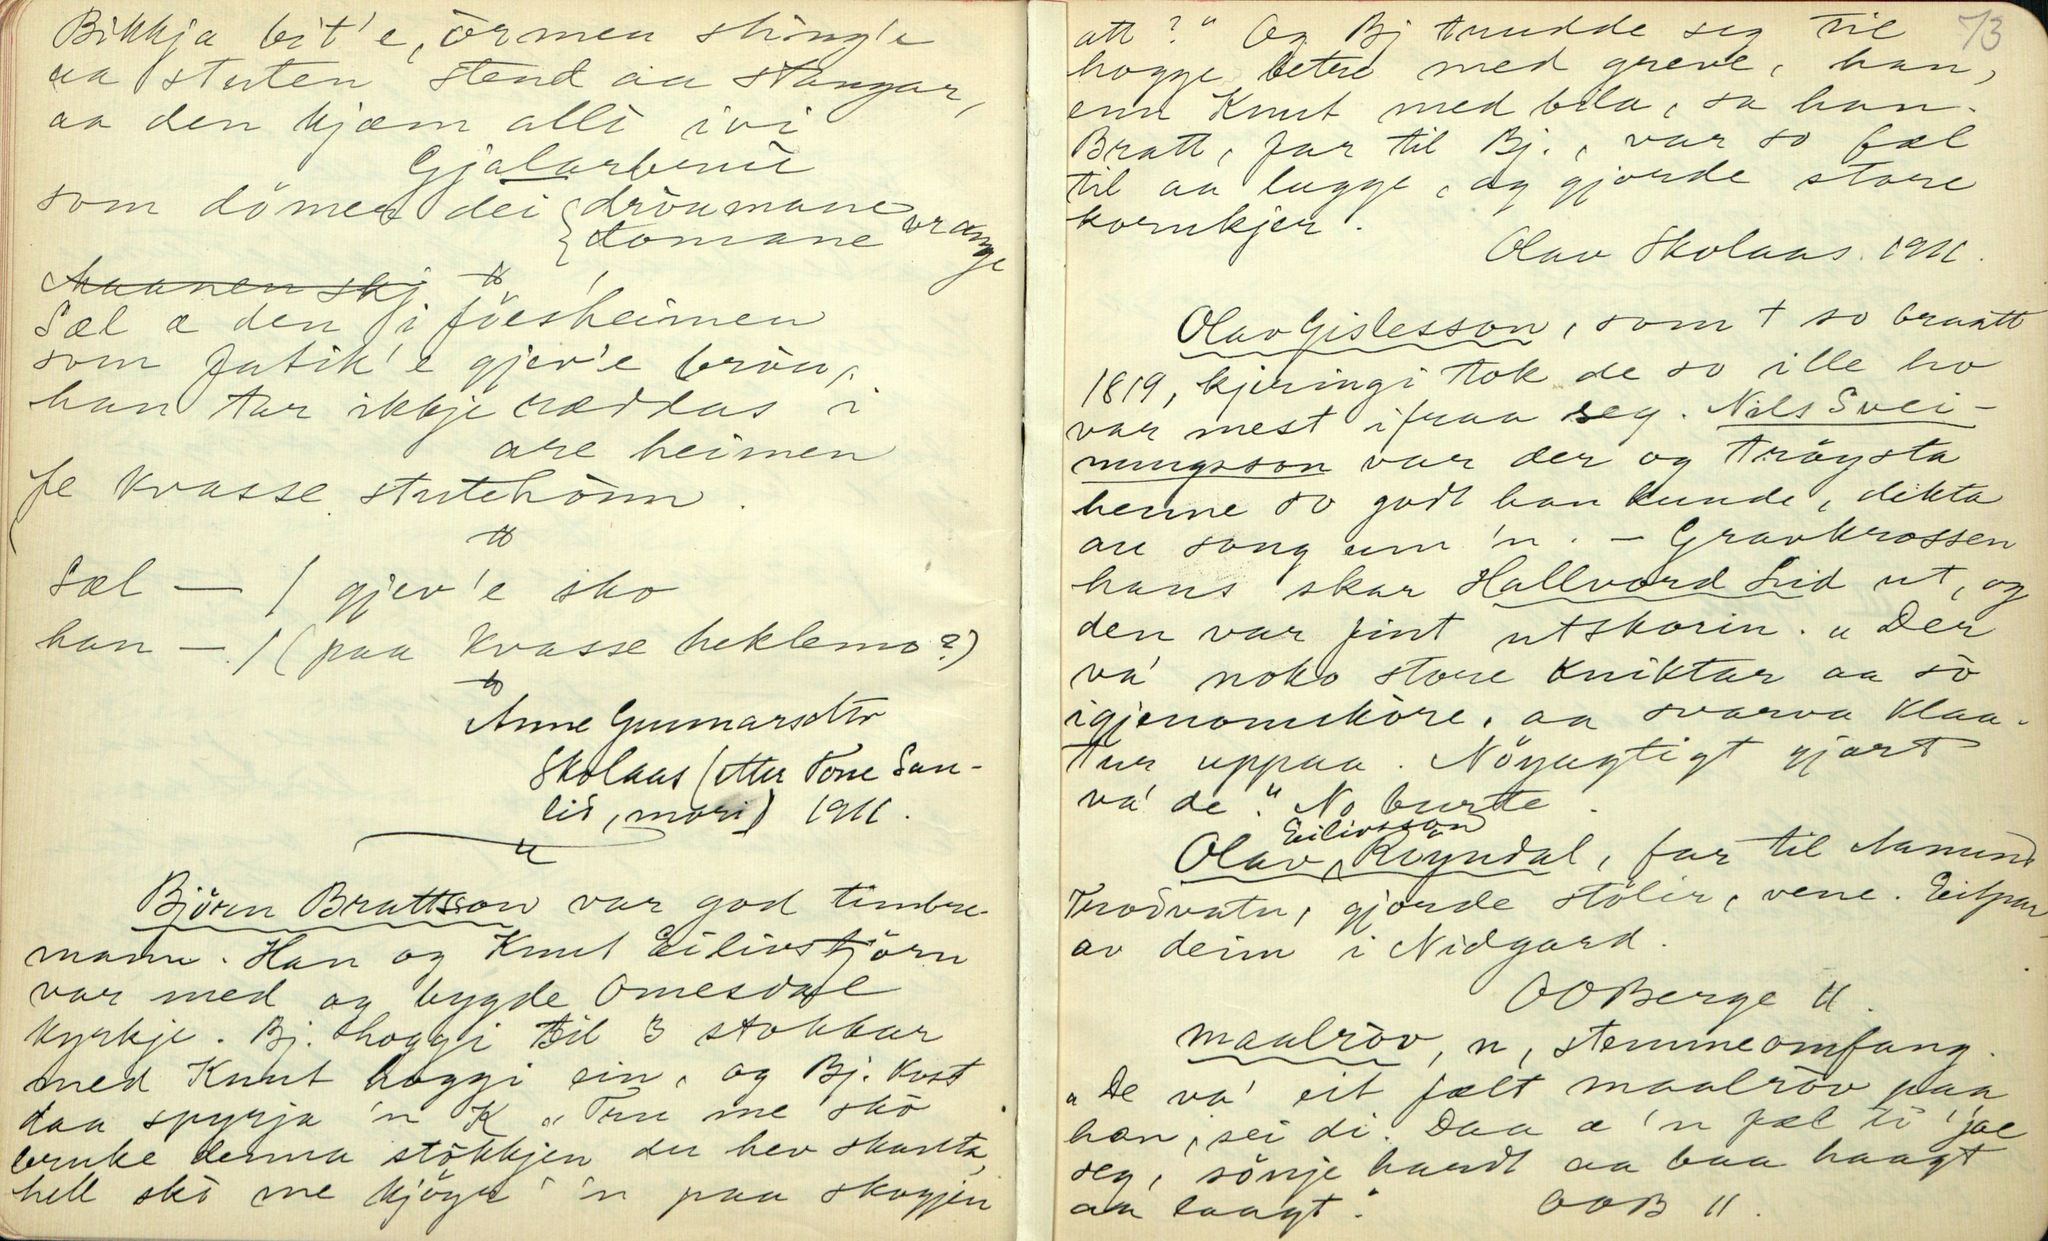 Bikkja bit'e, ormen sting'e
aa stuten stend aa stangar,
aa den kjæm alli ivi
Gjalarbrui
som dömer dei { dròumane vrange
{ domane
Maanen skj
Sæl æ den i föesheimen
som fatik'e gjev'e bròu,
han tar ikkje ræddas i
are heimen
fe kvasse stutehònn.
Sæl — / gjev'e sko
han — / (paa kvasse heklemo?)
Anne Gunnarsdtr
Skolaas (etter Tone San-
lid, mori) 1911.
Björn Brattsson var god timbre-
mann. Han og Knut Eilivstjörn
var med og bygde Omesdal
kyrkje. Bj. hoggi til 3 stokkar
med Knut hoggi ein, og Bj.
daa spyrja 'n K „Tru me sko
bruke denna stökkjen du hev skanta,
hell sko me kjöyre 'n paa skogjen
73
att?" Og Bj trudde seg til
hogge betre med greve, han,
enn Knut med bila, sa han.
Bratt, far til Bj., var so fæl
til aa lagge, og gjorde store
kornkjer.
Olav Skolaas 1911.
Olav Gislesson, som † so braatt
1819, kjeringi tok de so ille ho
var mest ifraa seg. Nils Svei-
nungsson var der og tröysta
henne so godt han kunde, dikta
ou song um 'n. — Gravkrossen
hans skar Hallvord Lid ut, og
den var fint utskorin. „Der
va' noko store kniktar aa so
igjenomskòre, aa svarva klaa-
tur uppaa. Nöyagtigt gjort
va' de." No burte.
Olav Eilivsson Röyndal, far til Aamund
Trodvatn, gjorde stölir, vene. Eitpar
av deim i Nidgard.
OOBerge 11.
maalròv, n, stemmeomfang.
„De va' eit fælt maalròv paa
han, sei di. Daa æ 'n fæl ti jae
seg, sönje hardt aa baa haagt
aa laagt." OOB 11.